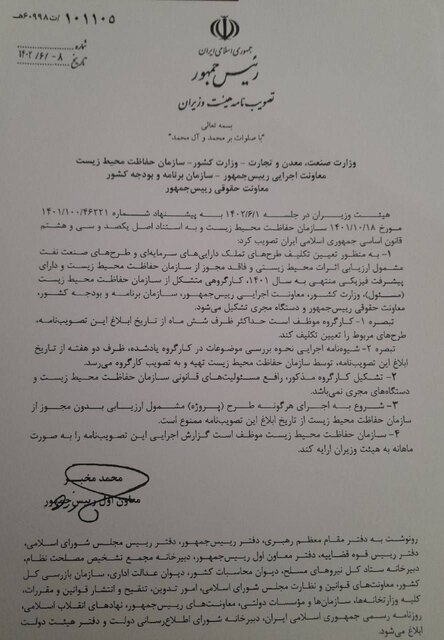 ۱۰۱۱۰۵/ت۶۰۹۹۸هـ
شماره
تاریخ ۱۴۰۲/۶/۰۸
جمهوری اسلامی ایران
رئیس جمهور
تصویب نامه هیئت وزیران
بسمه تعالی
"با صلوات بر محمد و آل محمد"
وزارت صنعت، معدن و تجارت - وزارت کشور - سازمان حفاظت محیط زیست
معاونت اجرایی رییس‌جمهور - سازمان برنامه و بودجه کشور
معاونت حقوقی رییس‌جمهور
هیئت وزیران در جلسه ۱۴۰۲/۶/۱ به پیشنهاد شماره ۱۴۰۱/۱۰۰/۴۶۲۲۱
مورخ ۱۴۰۱/۱۰/۱۸ سازمان حفاظت محیط زیست و به استناد اصل یکصد و سی و هشتم
قانون اساسی جمهوری اسلامی ایران تصویب کرد:
۱- به منظور تعیین تکلیف طرح‌های تملک دارایی‌های سرمایه‌ای و طرح‌های صنعت نفت
مشمول ارزیابی اثرات محیط زیستی و فاقد مجوز از سازمان حفاظت محیط زیست و دارای
پیشرفت فیزیکی منتهی به سال ۱۴۰۱، کارگروهی متشکل از سازمان حفاظت محیط زیست
(مسئول)، وزارت کشور، معاونت اجرایی رییس‌جمهور، سازمان برنامه و بودجه کشور،
معاونت حقوقی رییس‌جمهور و دستگاه مجری تشکیل می‌شود.
تبصره ۱- کارگروه موظف است حداکثر ظرف شش ماه از تاریخ ابلاغ این تصویب‌نامه،
طرح‌های مربوط را تعیین تکلیف کند.
تبصره ۲- شیوه‌نامه اجرایی نحوه بررسی موضوعات در کارگروه یادشده، ظرف دو هفته از تاریخ
ابلاغ این تصویب‌نامه، توسط سازمان حفاظت محیط زیست تهیه و به تصویب کارگروه می‌رسد.
۲- تشکیل کارگروه مذکور، رافع مسئولیت‌های قانونی سازمان حفاظت محیط زیست و
دستگاه‌های مجری نمی‌باشد.
۳- شروع به اجرای هرگونه طرح (پروژه) مشمول ارزیابی بدون مجوز از
سازمان حفاظت محیط زیست از تاریخ ابلاغ این تصویب‌نامه ممنوع است.
۴- سازمان حفاظت محیط زیست موظف است گزارش اجرایی این تصویب‌نامه را به صورت
ماهانه به هیئت وزیران ارایه کند.
محمد مخبر
معاون اول رییس‌جمهور
رونوشت به دفتر مقام معظم رهبری، دفتر رییس‌جمهور، دفتر رییس مجلس شورای اسلامی،
دفتر رییس قوه قضاییه، دفتر معاون اول رییس‌جمهور، دبیرخانه مجمع تشخیص مصلحت نظام،
دبیرخانه ستاد کل نیروهای مسلح، دیوان محاسبات کشور، دیوان عدالت اداری، سازمان بازرسی کل
کشور، معاونت‌های قوانین و نظارت مجلس شورای اسلامی، امور تدوین، تنقیح و انتشار قوانین و مقررات،
کلیه وزارتخانه‌ها، سازمان‌ها و مؤسسات دولتی، معاونت‌های رییس‌جمهور، نهادهای انقلاب اسلامی،
روزنامه رسمی جمهوری اسلامی ایران، دبیرخانه شورای اطلاع‌رسانی دولت و دفتر هیئت دولت
ابلاغ می‌شود.